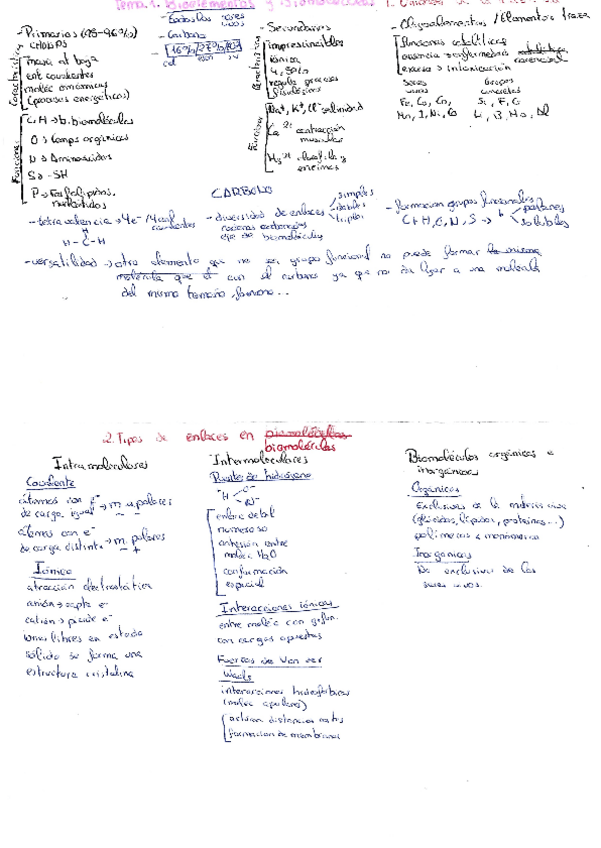 Tema 1. Bioelementos y Biomoléculas
- Primarios (95-96%)
CHONPS
masa at baja
ent covalentes
(procesos energéticos)
Características
Funciones
C, H → b. biomoléculas
O → Comps orgánicos
N → Aminoácidos
S → -SH
P → Fosfolípidos,
nucleótidos
- Todos los seres
vivos
- Carbono
- Secundarios
imprescindibles
iónica
4,5%
regula procesos
fisiológicos
Características
Funciones
Na⁺, K⁺, Cl⁻ salinidad
Ca²⁺ contracción
muscular
Mg²⁺ clorofila y
enzimas
- Oligoelementos / Elementos traza
funciones catalíticas
ausencia → enfermedades carenciales
exceso → intoxicación
Seres
vivos
Grupos
concretos
Fe, Co, Cu,
Mn, I, Ni,
Si, F,
CARBONO
- tetravalencia → 4e⁻ / 4 enl
covalentes
H
H - C - H
- diversidad de enlaces
simples
dobles
triples
eje de biomoléculas
- formación grupos funcionales
C + H, O, N, S →
polares
solubles
- versatilidad → otro elemento que no sea grupo funcional no puede formar la misma
molécula que el con el carbono ya que no da lugar a una molécula
del mismo tamaño, forma...
2. Tipos de enlaces en
biomoléculas
Intramoleculares
Covalente
átomos con e⁻
de carga igual → m. apolares
átomos con e⁻
de carga distinta → m. polares
Iónico
atracción electrostática
anión → capta e⁻
catión → pierde e⁻
iones libres en estado
sólido se forma una
estructura cristalina
Intermoleculares
Puente de hidrógeno
H
O⁻
N⁻
enlace débil
numeroso
cohesión entre
moléc. H₂O
conformación
espacial
Interacciones iónicas
entre moléc con g. fun.
con cargas opuestas
Fuerzas de Van der
Waals
interacciones hidrofóbicas
(moléc apolares)
actúan distancias cortas
formación de membranas
Biomoléculas orgánicas e
inorgánicas
Orgánicas
Exclusivas de la materia viva
(glúcidos, lípidos, proteínas...)
polímeros o monómeros
Inorgánicas
No exclusivas de los
seres vivos.